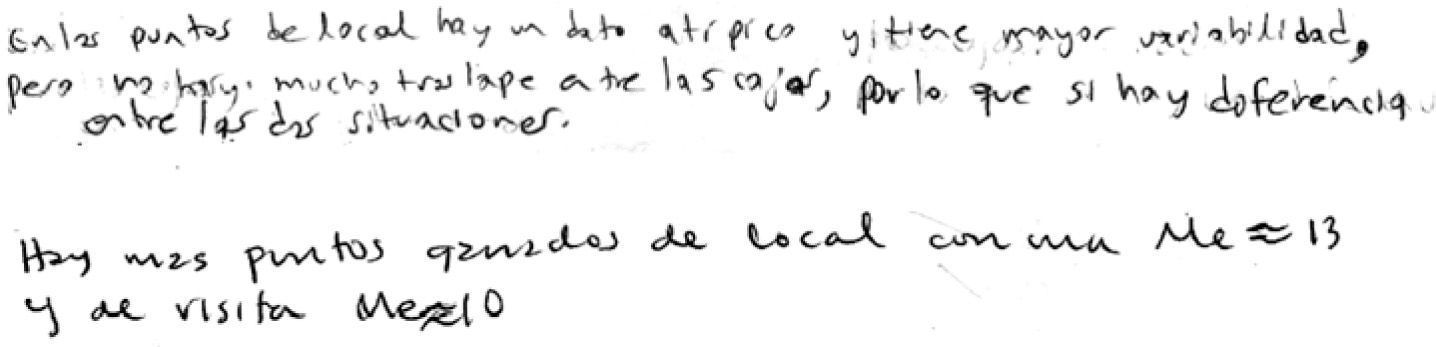 En los puntos de local hay un dato atípico y tiene mayor variabilidad,
pero no hay mucho traslape entre las cajas, por lo que si hay diferencia
entre las dos situaciones.
Hay mas puntos ganados de local con una Me ≈ 13
y de visita Me ≈ 10